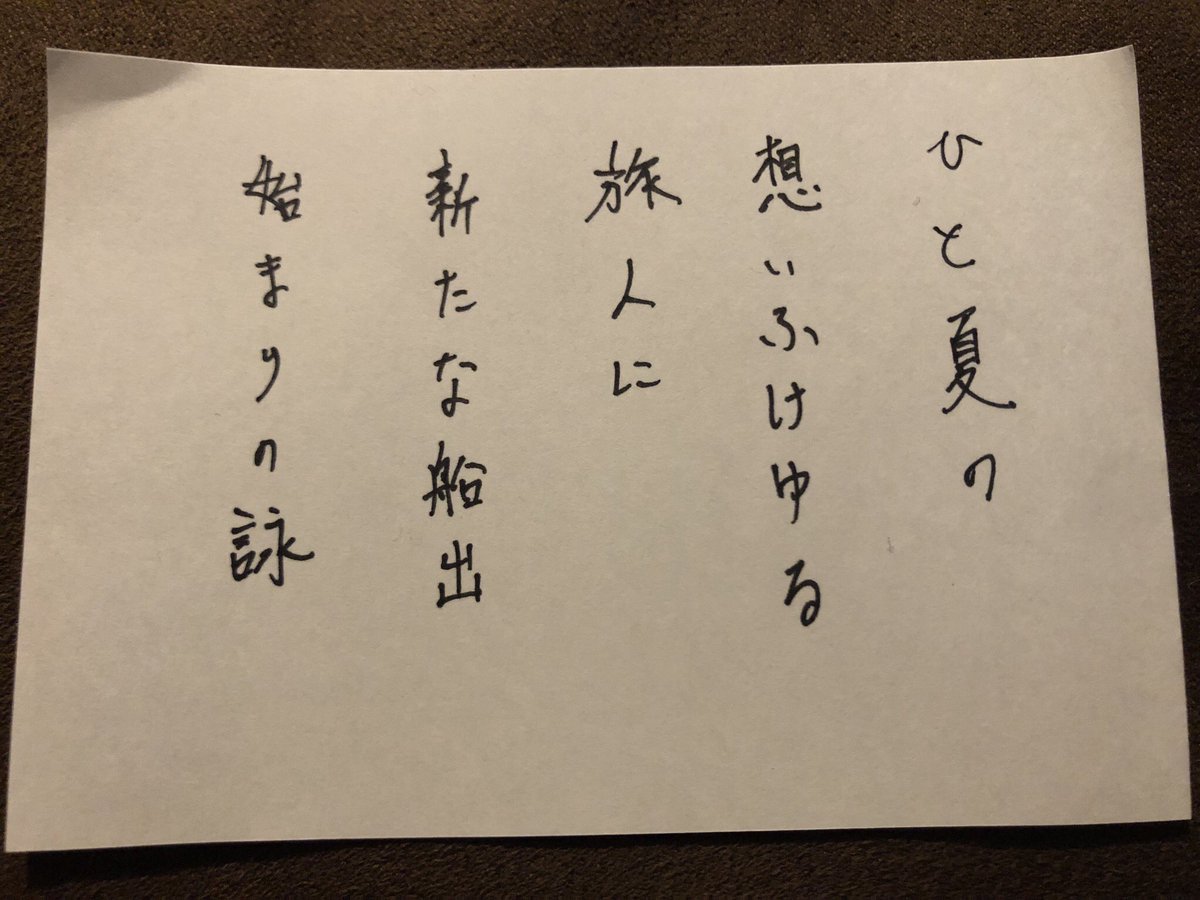 ひと夏の
想いふけゆる
旅人に
新たな船出
始まりの詠